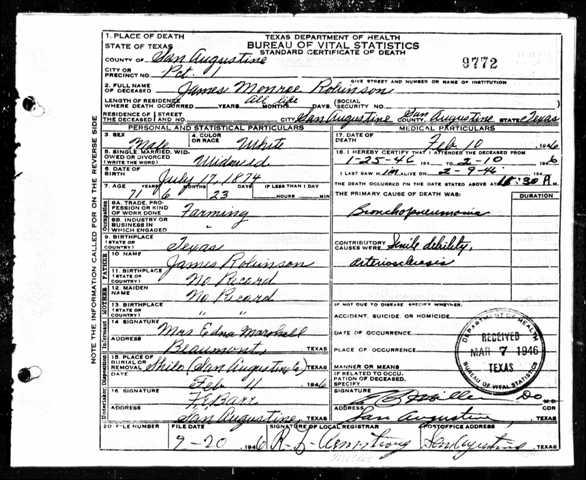 TEXAS DEPARTMENT OF HEALTH
BUREAU OF VITAL STATISTICS
STANDARD CERTIFICATE OF DEATH
9772
1. PLACE OF DEATH
STATE OF TEXAS
COUNTY OF San Augustine
CITY OR PRECINCT NO. Pct. 1
GIVE STREET AND NUMBER OR NAME OF INSTITUTION
2. FULL NAME OF DECEASED James Monroe Robinson
LENGTH OF RESIDENCE WHERE DEATH OCCURRED YEARS All life MONTHS DAYS (SOCIAL SECURITY NO.
RESIDENCE OF THE DECEASED STREET AND NO. CITY San Augustine COUNTY San Augustine STATE Texas
PERSONAL AND STATISTICAL PARTICULARS
3. SEX Male 4. COLOR OR RACE White
5. SINGLE, MARRIED, WIDOWED OR DIVORCED (WRITE THE WORD) Widowed
6. DATE OF BIRTH July 17, 1874
7. AGE YEARS 71 MONTHS 6 DAYS 23 IF LESS THAN 1 DAY HOURS MIN
8A. TRADE, PROFESSION OR KIND OF WORK DONE Farming
8B. INDUSTRY OR BUSINESS IN WHICH ENGAGED "
9. BIRTHPLACE (STATE OR COUNTRY) Texas
FATHER
10. NAME James Robinson
11. BIRTHPLACE (STATE OR COUNTRY) No Record
MOTHER
12. MAIDEN NAME No Record
13. BIRTHPLACE (STATE OR COUNTRY) " "
14. SIGNATURE Mrs Edna Marshall
ADDRESS Beaumont, TEXAS
15. PLACE OF BURIAL OR REMOVAL Shilo (San Augustine) TEXAS
DATE Feb 11 1946
16. SIGNATURE
ADDRESS San Augustine TEXAS
MEDICAL PARTICULARS
17. DATE OF DEATH Feb 10 1946
18. I HEREBY CERTIFY THAT I ATTENDED THE DECEASED FROM
1-25-46 TO 2-10- 1946
I LAST SAW HIM ALIVE ON 2-9-46
THE DEATH OCCURRED ON THE DATE STATED ABOVE AT M.
THE PRIMARY CAUSE OF DEATH WAS: DURATION
Bronchopneumonia
CONTRIBUTORY CAUSES WERE Senile debility,
arteriosclerosis
IF NOT DUE TO DISEASE, SPECIFY WHETHER:
ACCIDENT, SUICIDE, OR HOMICIDE
DATE OF OCCURRENCE
PLACE OF OCCURRENCE
MANNER OR MEANS
IF RELATED TO OCCUPATION OF DECEASED, SPECIFY
SIGNATURE
ADDRESS San Augustine, TEXAS
DEPARTMENT OF HEALTH
RECEIVED
MAR 7 1946
TEXAS
BUREAU OF VITAL STATISTICS
20. FILE NUMBER FILE DATE SIGNATURE OF LOCAL REGISTRAR POSTOFFICE ADDRESS
1946 R. L. Armstrong San Augustine TEXAS
NOTE THE INFORMATION CALLED FOR ON THE REVERSE SIDE